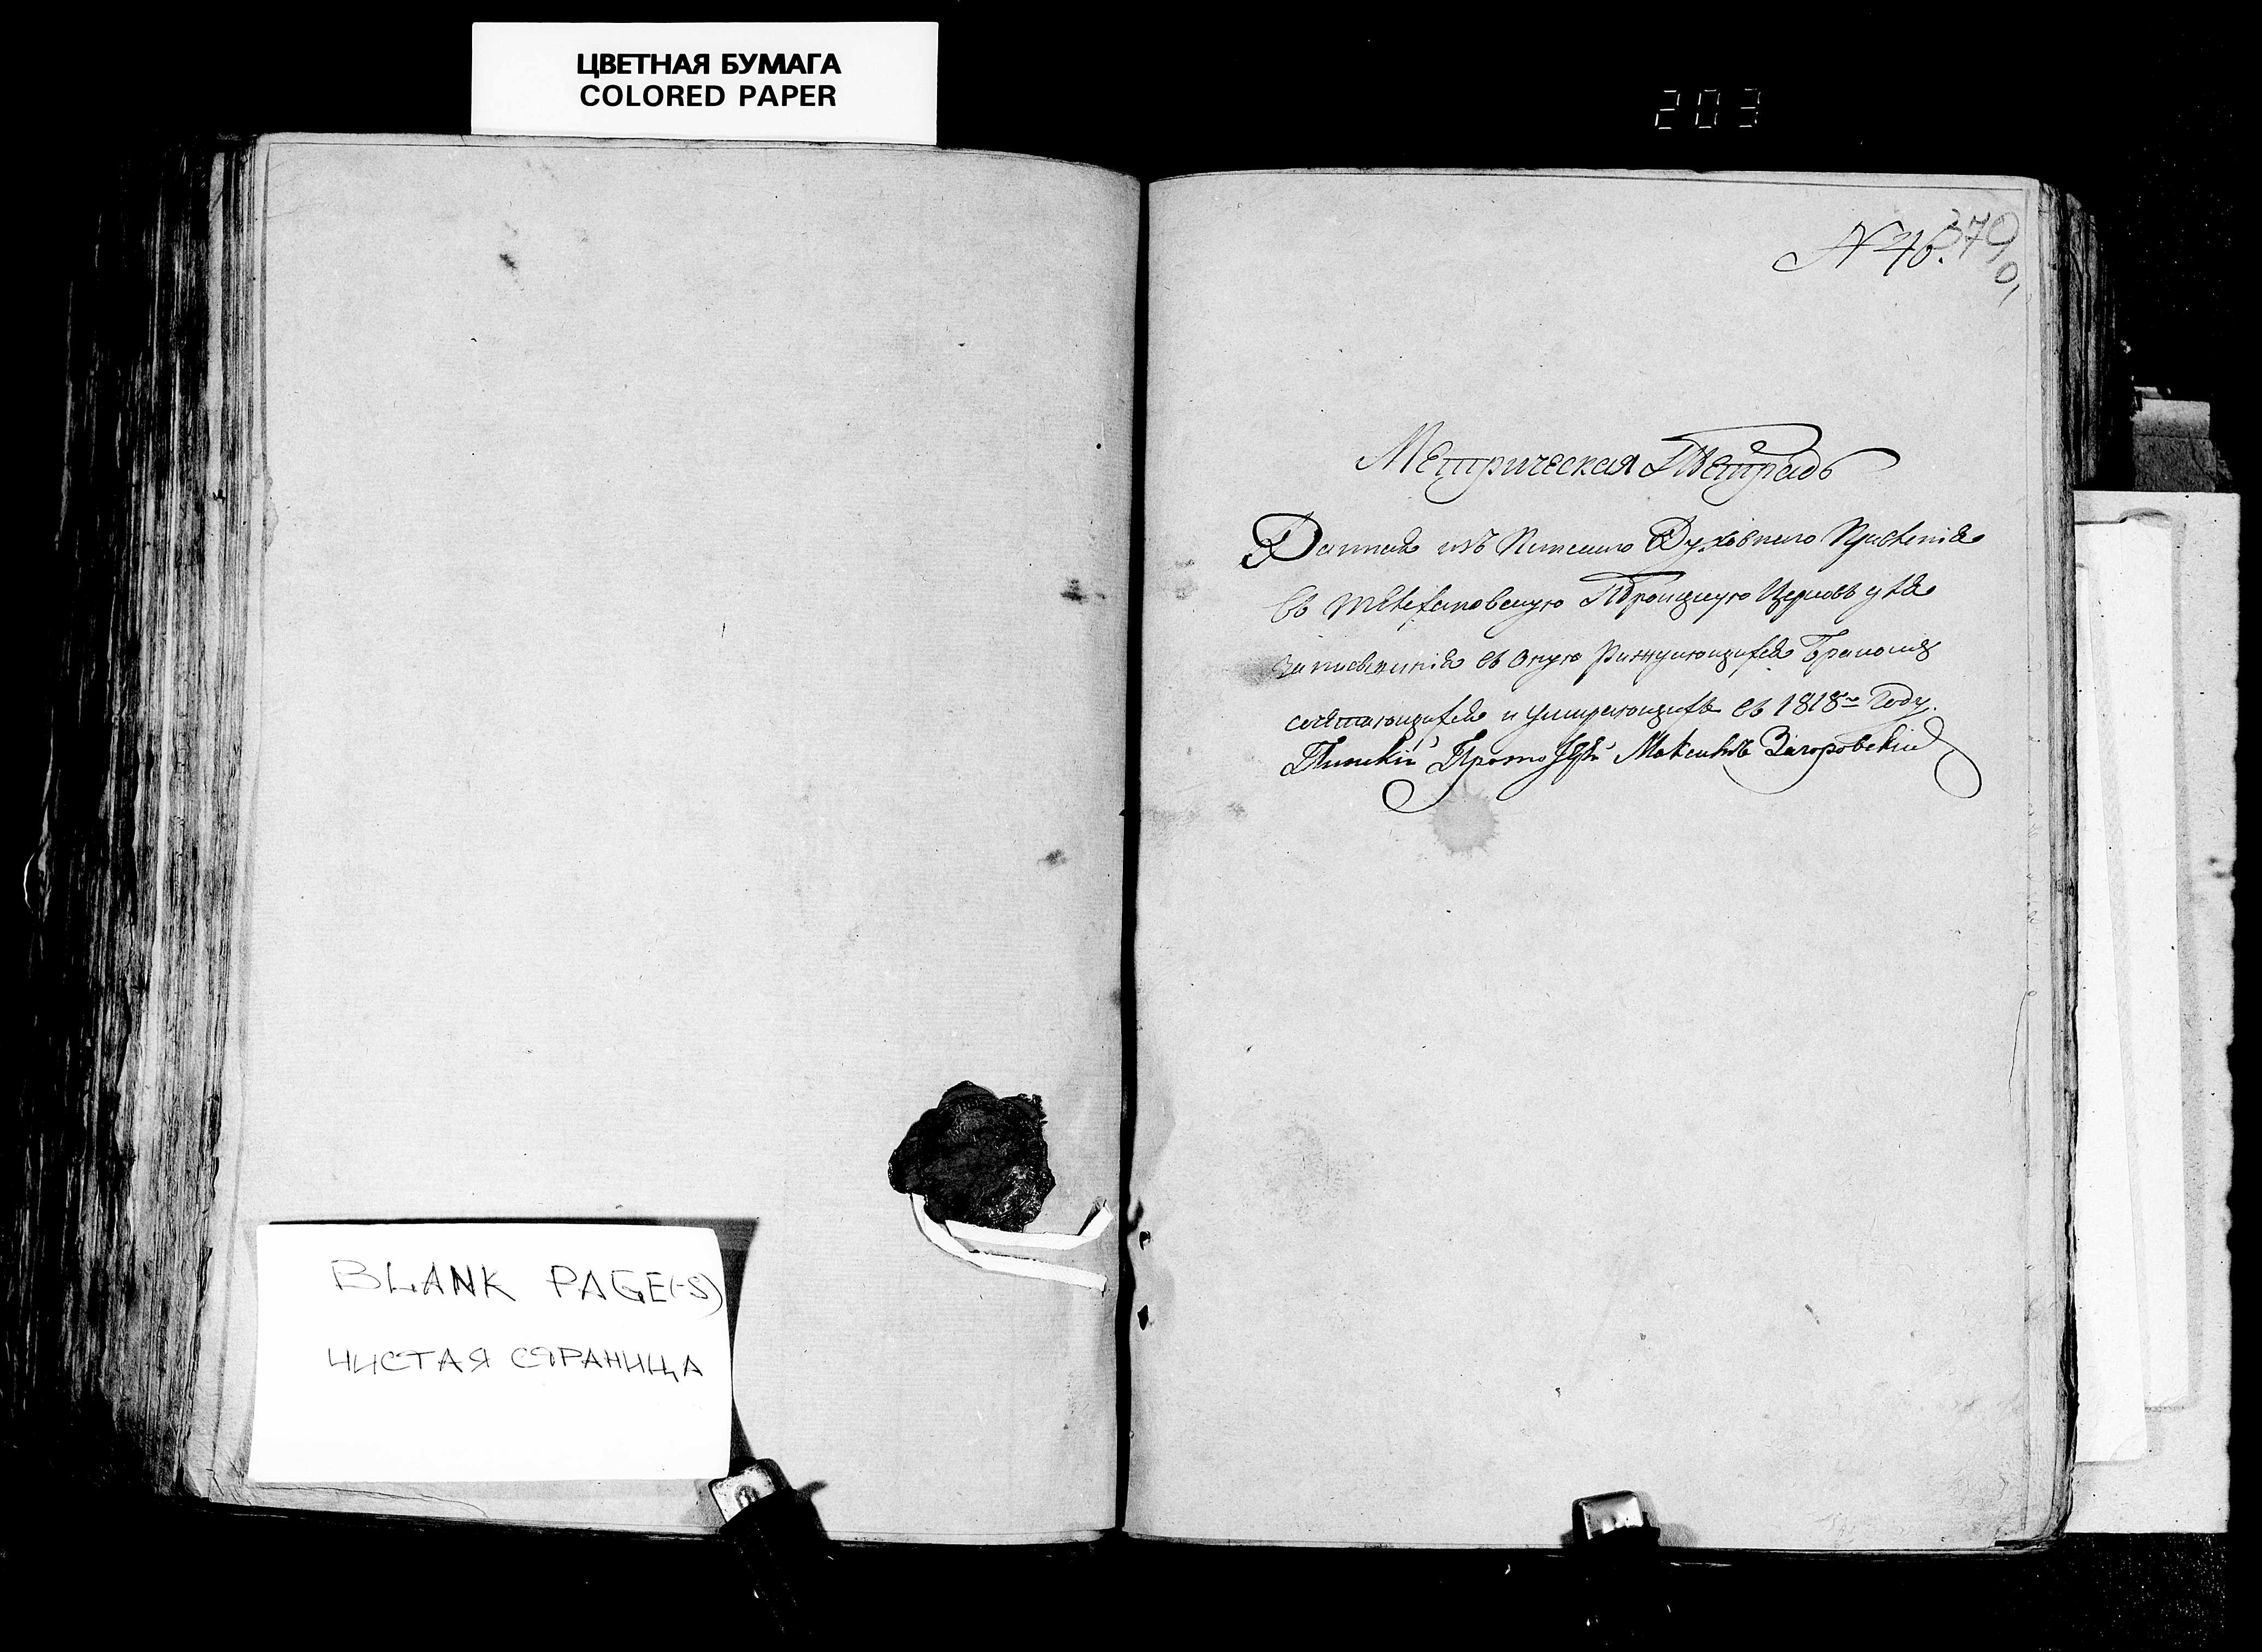 ЦВЕТНАЯ БУМАГА
COLORED PAPER
203
N 46.
379
Метрическая Тетрадь
Данная изъ Пинскаго Духовнаго Правленія
въ Троицкую Церковь для
записыванія въ оную Раждающихся Бракомъ
сочетающихся и умирающихъ въ 1818м Году.
Пинскій Протоіерей Максимъ Загоровскій
BLANK PAGE(-S)
ЧИСТАЯ СТРАНИЦА